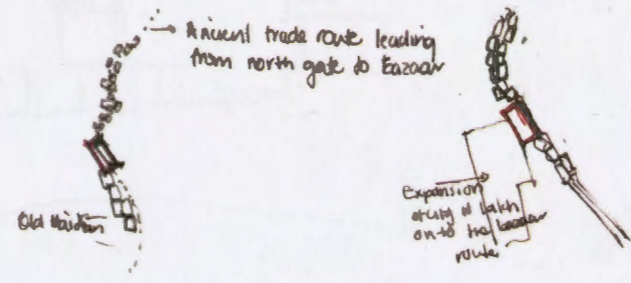 Ancient trade route leading
from north gate to Bazaar
Old Maidan
Expansion
of city
on to the bazaar
route